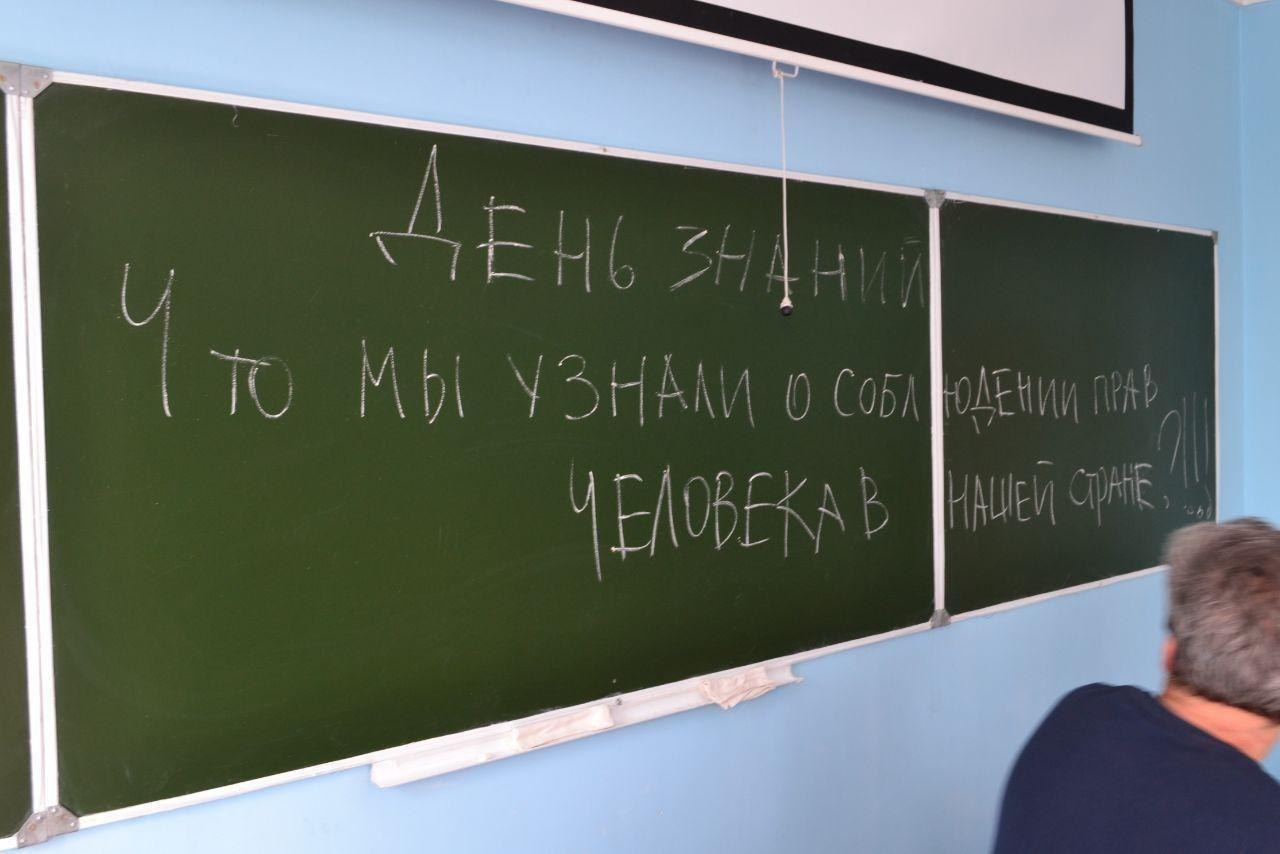 ДЕНЬ ЗНАНИЙ
ЧТО МЫ УЗНАЛИ О СОБЛЮДЕНИИ ПРАВ
ЧЕЛОВЕКА В НАШЕЙ СТРАНЕ?!!!...